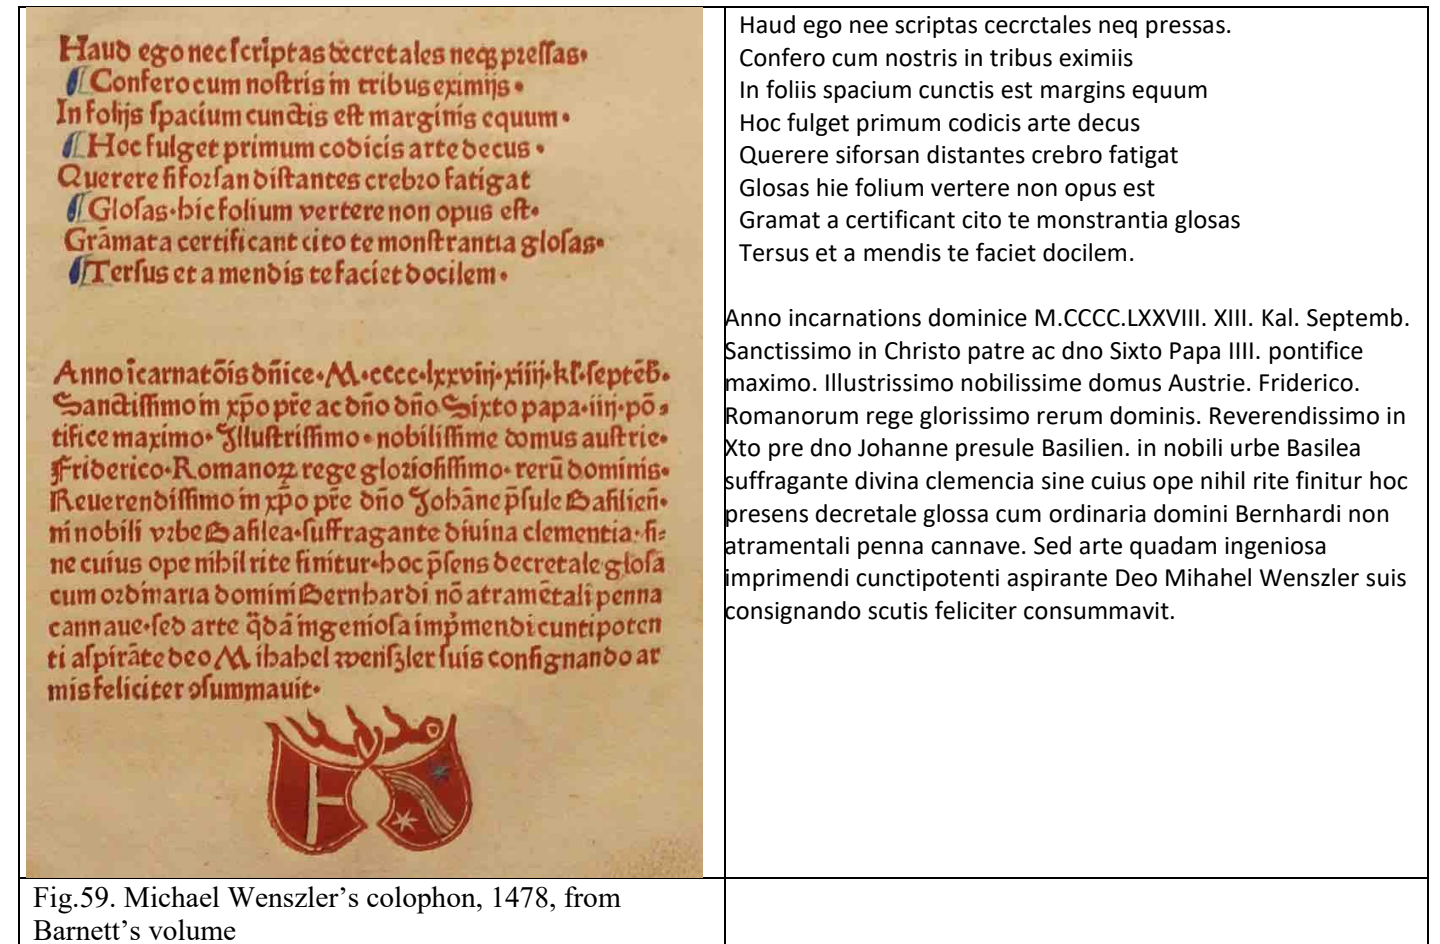 Haud ego nec ſcriptas decretales neqꝫ preſſas·
Confero cum noſtris in tribus eximijs·
In folijs ſpacium cunctis eſt marginis equum·
Hoc fulget primum codicis arte decus·
Querere ſi forſan diſtantes crebro fatigat
Gloſas·hic folium vertere non opus eſt·
Grāmata certificant cito te monſtrantia gloſas·
Terſus et a mendis te faciet docilem·
Anno īcarnatōis dn̄ice·M·cccc·lxxviij·xiiij·kl̄·ſeptēb̄·
Sanctiſſimo in xp̄o pr̄e ac dn̄o dn̄o Sixto papa·iiij·pō⸗
tifice maximo·Illuſtriſſimo·nobiliſſime domus auſtrie·
Friderico·Romanoꝝ rege glorioſiſſimo·rerū dominis·
Reuerendiſſimo in xp̄o pr̄e dn̄o Johāne p̄ſule Baſilien̄·
in nobili vrbe Baſilea·ſuffragante diuina clementia·ſi⸗
ne cuius ope nihil rite finitur·hoc p̄ſens decretale gloſa
cum ordinaria domini Bernhardi nō atramētali penna
cannaue·ſed arte q̄dā ingenioſa imp̄mendi cuntipoten
ti aſpirāte deo Mihahel wenſzler ſuis conſignando ar
mis feliciter ꝯſummauit·
Haud ego nee scriptas cecrctales neq pressas.
Confero cum nostris in tribus eximiis
In foliis spacium cunctis est margins equum
Hoc fulget primum codicis arte decus
Querere siforsan distantes crebro fatigat
Glosas hie folium vertere non opus est
Gramat a certificant cito te monstrantia glosas
Tersus et a mendis te faciet docilem.
Anno incarnations dominice M.CCCC.LXXVIII. XIII. Kal. Septemb.
Sanctissimo in Christo patre ac dno Sixto Papa IIII. pontifice
maximo. Illustrissimo nobilissime domus Austrie. Friderico.
Romanorum rege glorissimo rerum dominis. Reverendissimo in
Xto pre dno Johanne presule Basilien. in nobili urbe Basilea
suffragante divina clemencia sine cuius ope nihil rite finitur hoc
presens decretale glossa cum ordinaria domini Bernhardi non
atramentali penna cannave. Sed arte quadam ingeniosa
imprimendi cunctipotenti aspirante Deo Mihahel Wenszler suis
consignando scutis feliciter consummavit.
Fig.59. Michael Wenszler’s colophon, 1478, from
Barnett’s volume